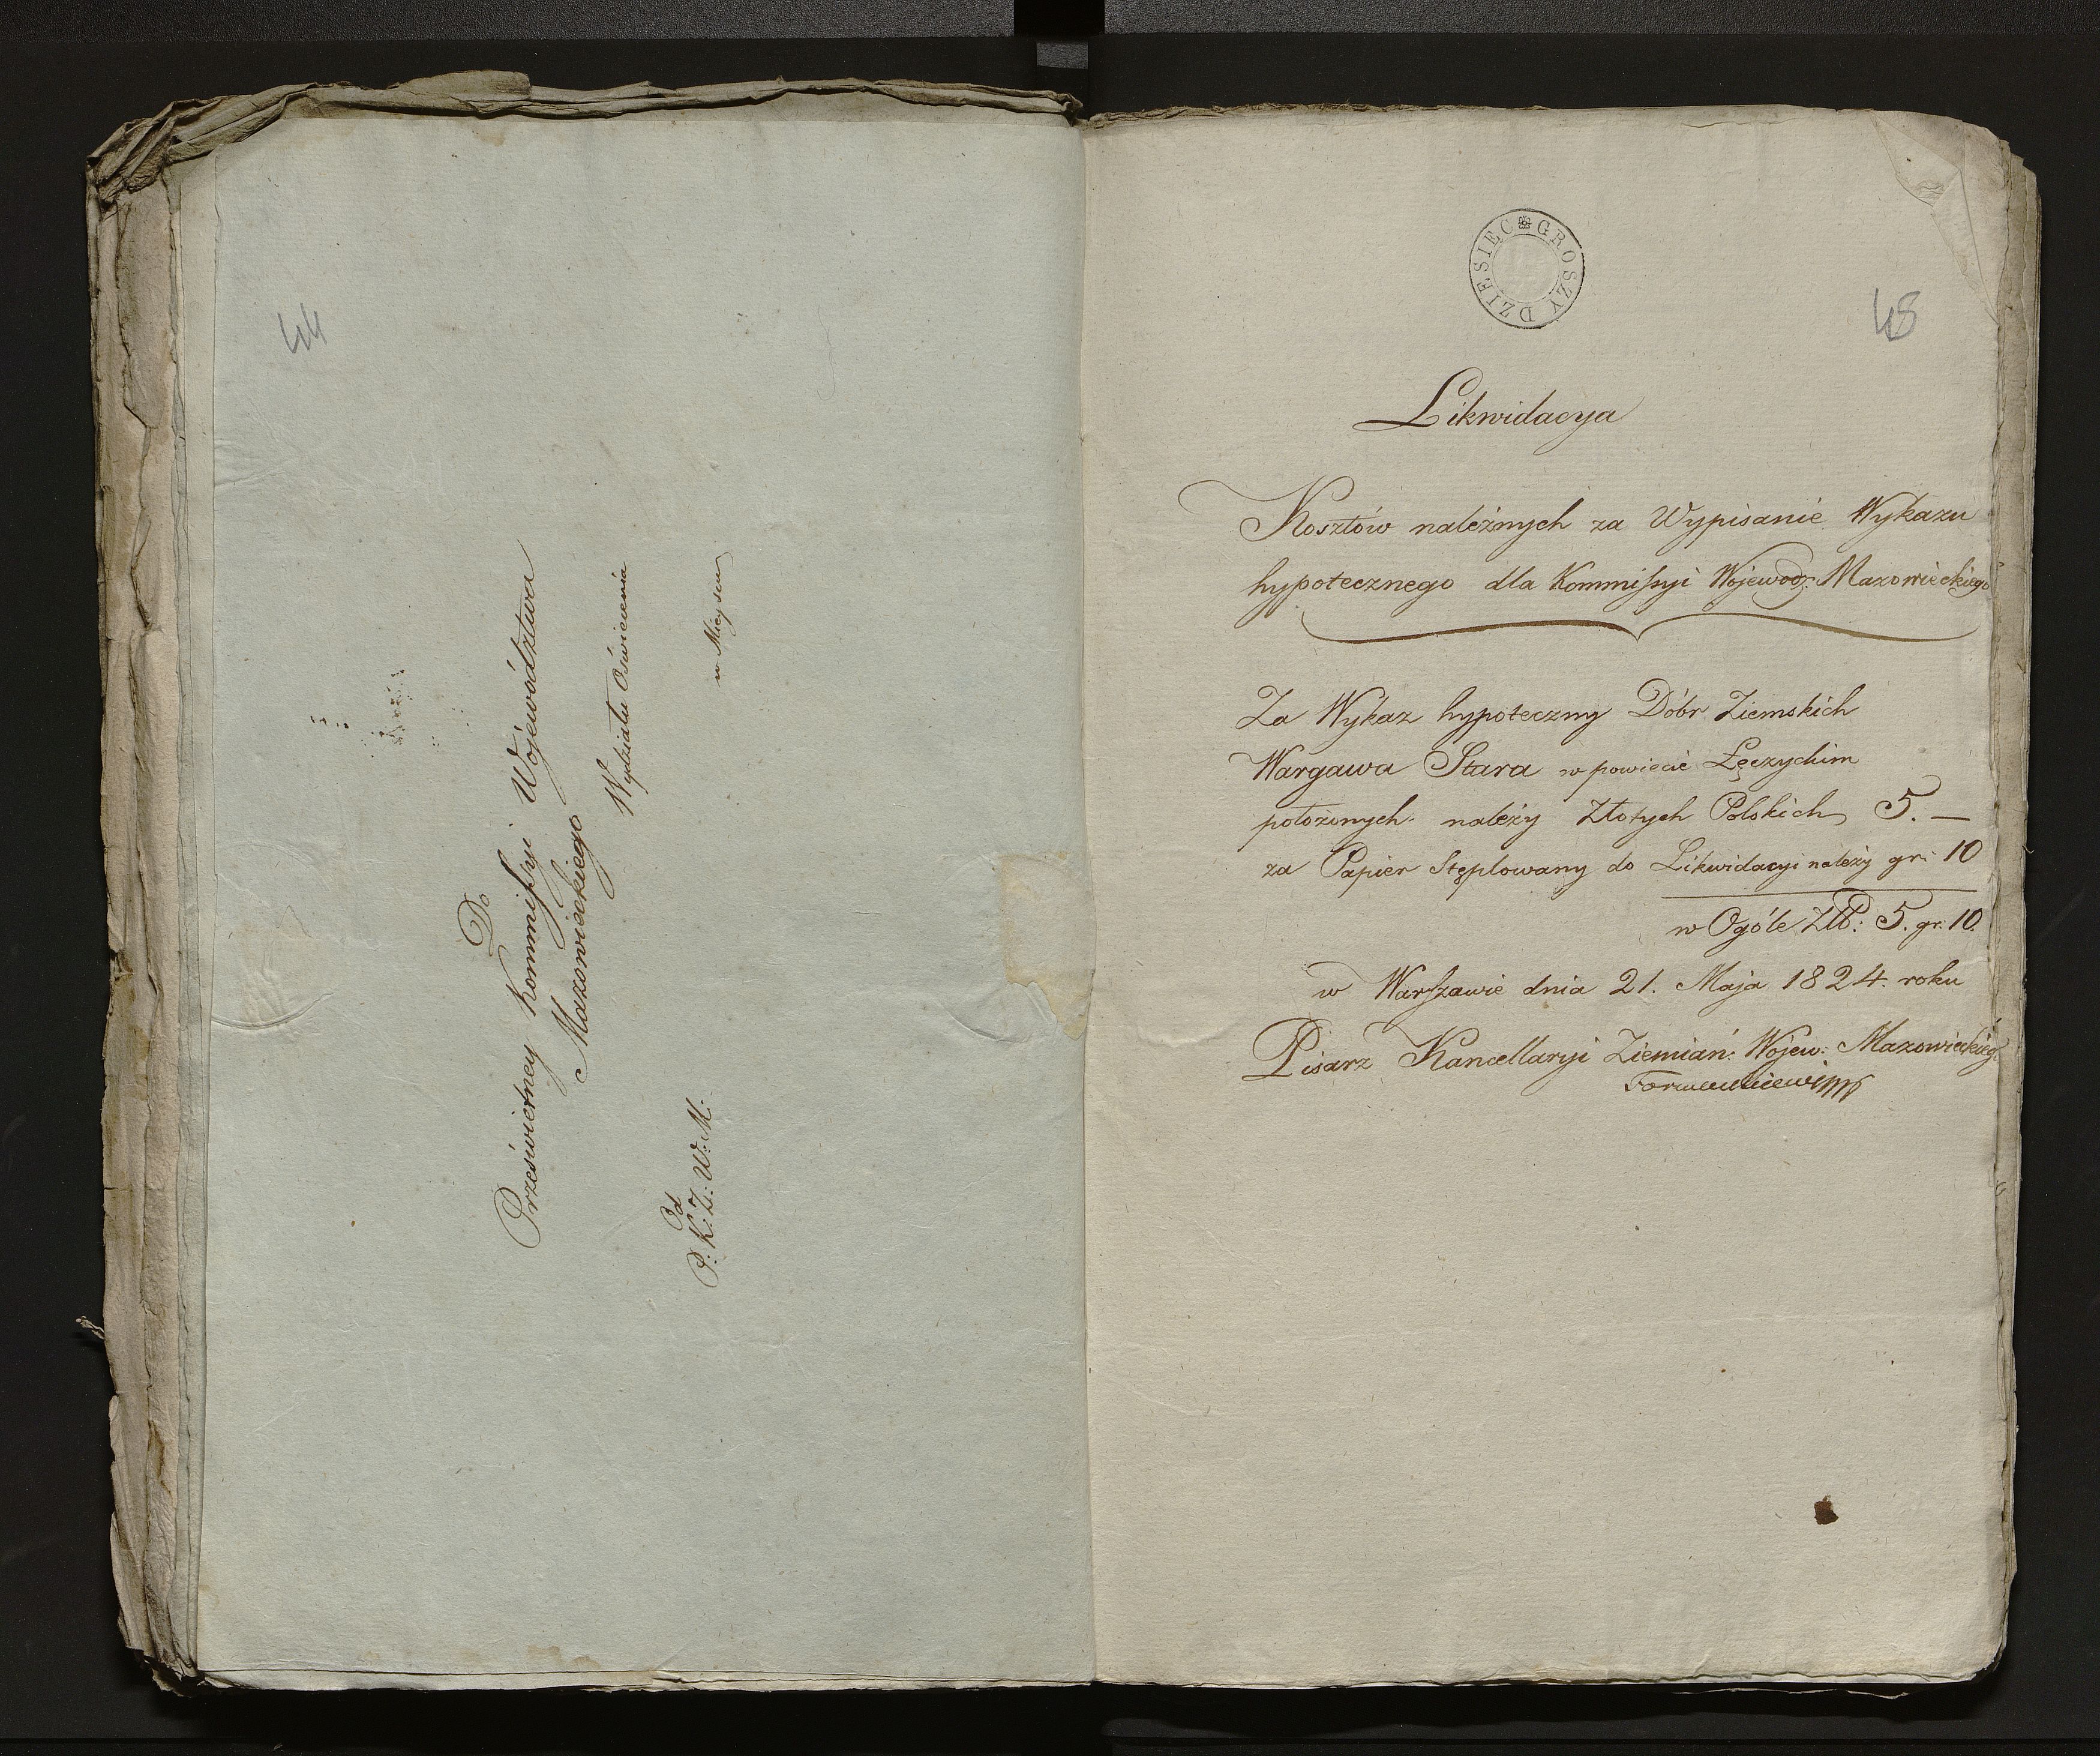 44
Do
Prześwietney Kommissyi Województwa
Mazowieckiego
Wydziału Oświecenia
w Mieyscu
Od
P: K: Z: W: M:
DZIESIĘC GROSZY
45
Likwidacya
Kosztów należnych za Wypisanie Wykazu
hypotecznego dla Kommissyi Wojewodz: Mazowieckiego
Za Wykaz hypoteczny Dóbr Ziemskich
Wargawa Stara w powiecie Łęczyckim
położonych należy Złotych Polskich 5. —
za Papier Stęplowany do Likwidacyi należy gr: 10
w Ogóle Złł: 5. gr. 10.
w Warszawie dnia 21. Maja 1824. roku
Pisarz Kancellaryi Ziemiań: Wojew: Mazowieckieg: